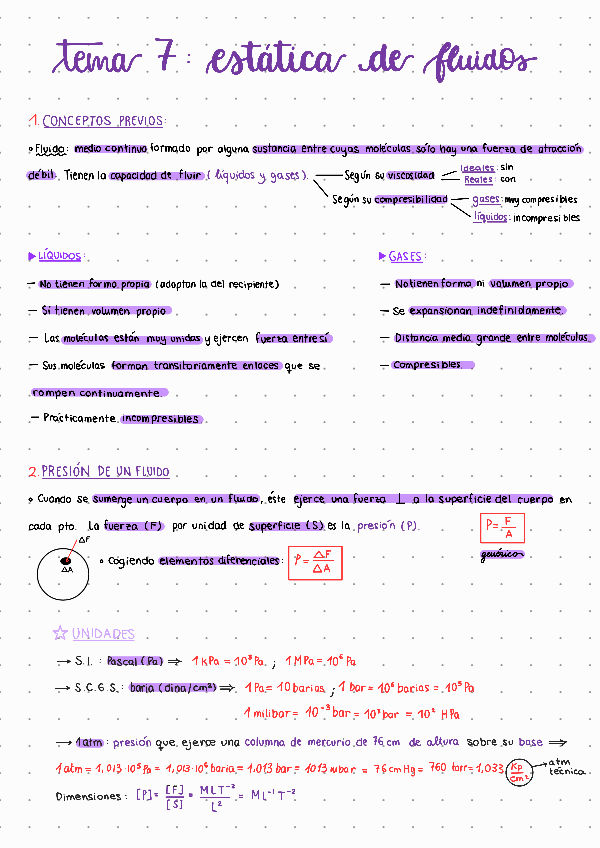 tema 7: estática de fluidos
1. CONCEPTOS PREVIOS:
• Fluido: medio continuo formado por alguna sustancia entre cuyas moléculas sólo hay una fuerza de atracción
débil. Tienen la capacidad de fluir (líquidos y gases). — Según su viscosidad — Ideales: sin
Reales: con
Según su compresibilidad — gases: muy compresibles
líquidos: incompresibles
▶ LÍQUIDOS:
— No tienen forma propia (adoptan la del recipiente)
— Sí tienen volumen propio
— Las moléculas están muy unidas y ejercen fuerza entre sí
— Sus moléculas forman transitoriamente enlaces que se
rompen continuamente.
— Prácticamente incompresibles
▶ GASES:
— No tienen forma ni volumen propio
— Se expansionan indefinidamente
— Distancia media grande entre moléculas
— Compresibles
2. PRESIÓN DE UN FLUIDO
• Cuando se sumerge un cuerpo en un fluido, éste ejerce una fuerza ⊥ a la superficie del cuerpo en
cada pto. La fuerza (F) por unidad de superficie (S) es la presión (P).
P = F/A
genérico
ΔF
ΔA
• Cogiendo elementos diferenciales: P = ΔF/ΔA
☆ UNIDADES
→ S.I.: Pascal (Pa) ⇒ 1 kPa = 10³ Pa ; 1 MPa = 10⁶ Pa
→ S.C.G.S.: baria (dina/cm²) ⇒ 1 Pa = 10 barias ; 1 bar = 10⁶ barias = 10⁵ Pa
1 milibar = 10⁻³ bar = 10³ bar = 10² HPa
→ 1 atm: presión que ejerce una columna de mercurio de 76 cm de altura sobre su base ⇒
1 atm = 1,013·10⁵ Pa = 1,013·10⁶ baria = 1.013 bar = 1013 mbar = 76 cm Hg = 760 torr = 1,033 Kp/cm² → atm
técnica
Dimensiones: [P] = [F]/[S] = MLT⁻²/L² = ML⁻¹T⁻²